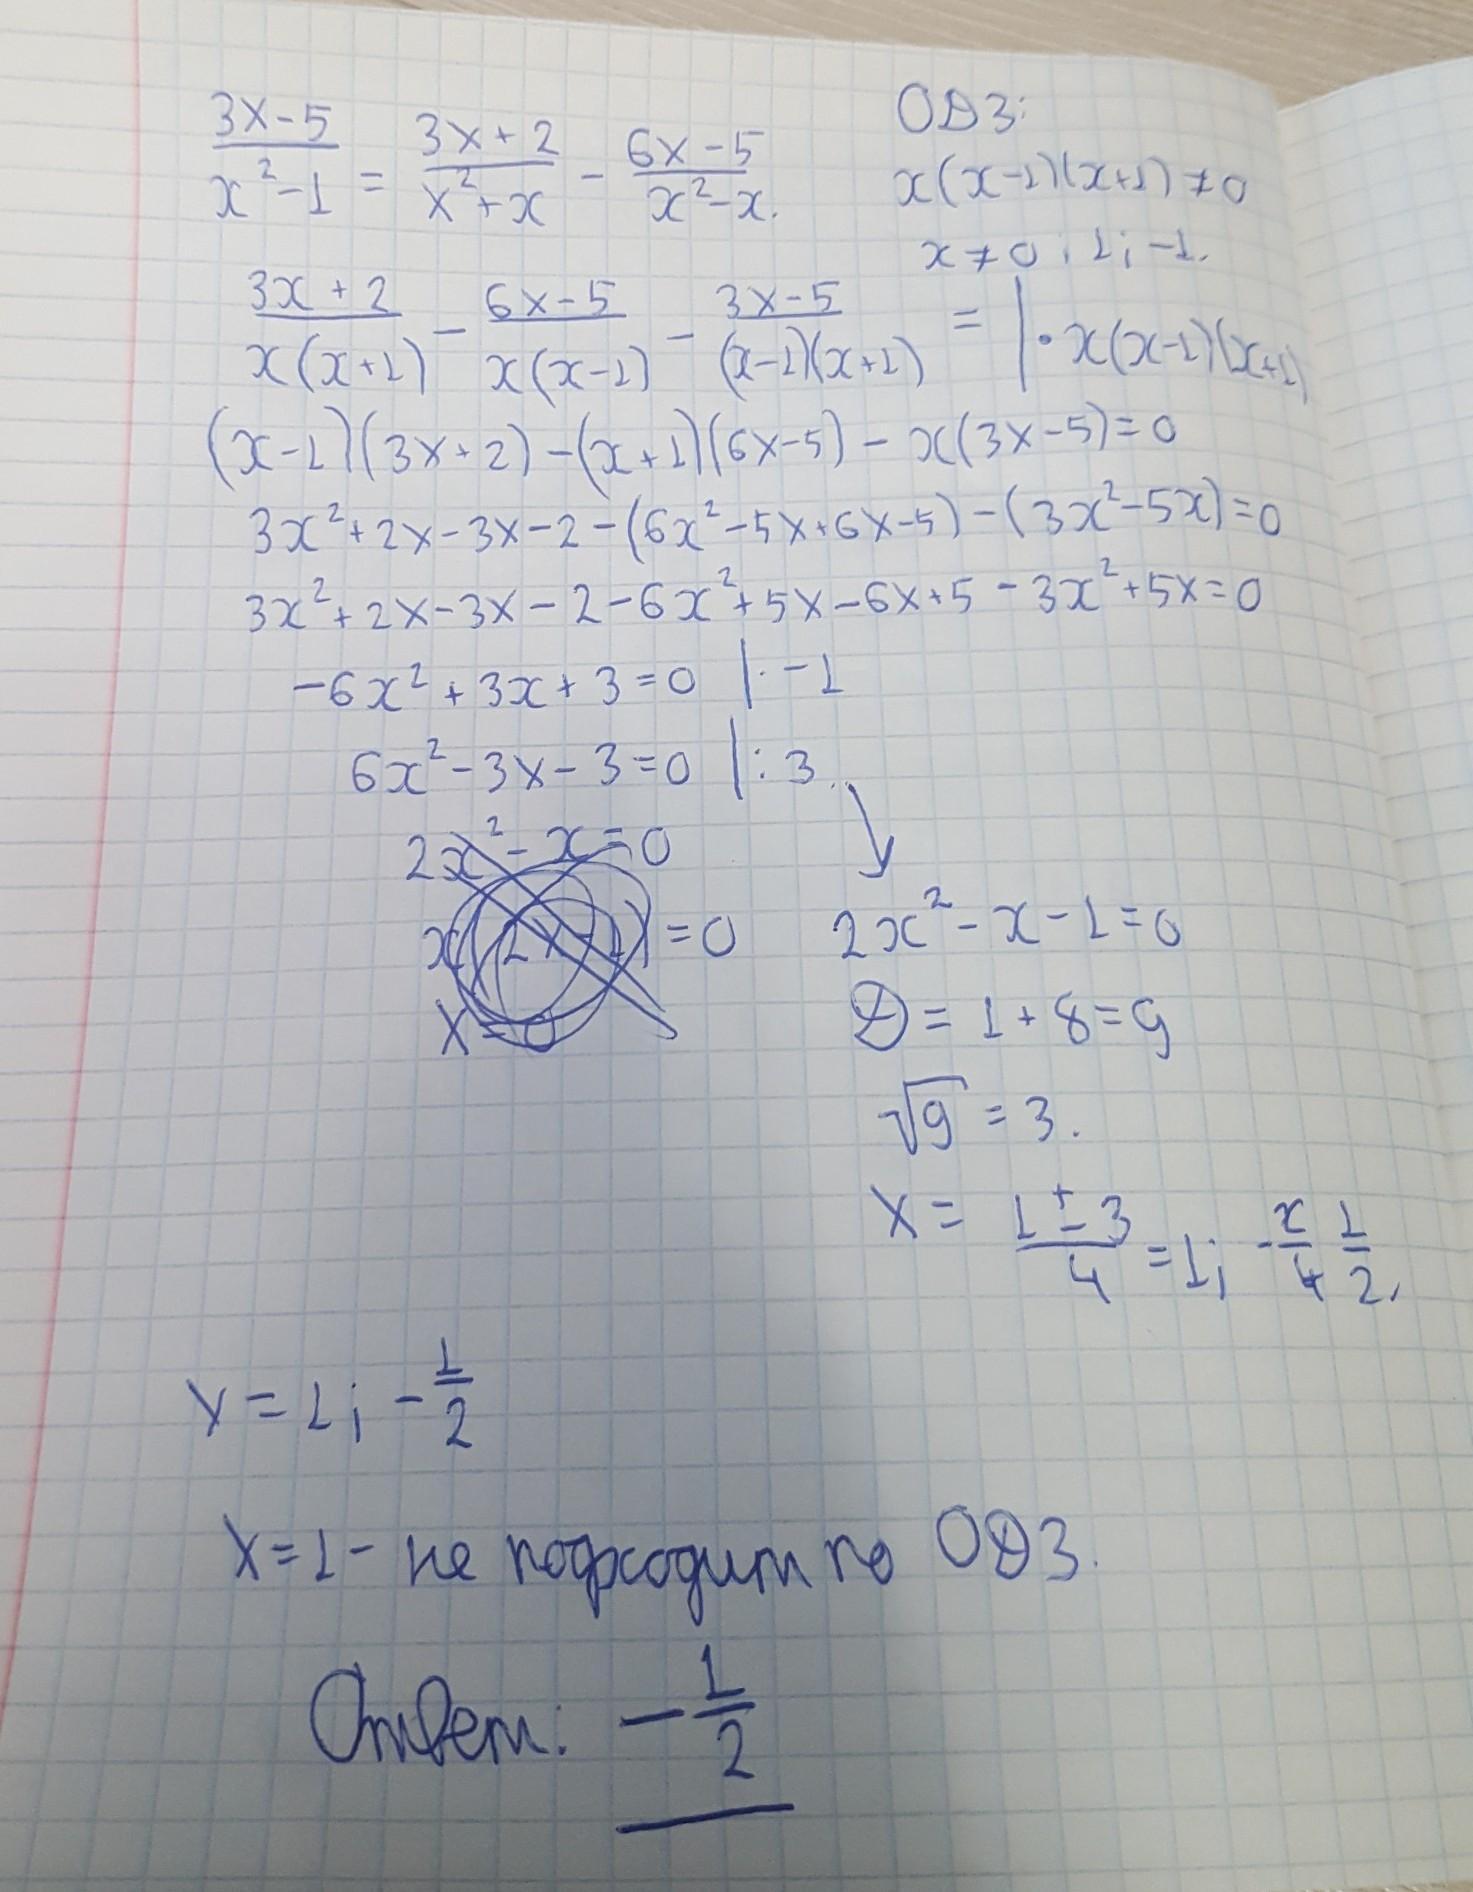 (3x-5)/(x²-1) = (3x+2)/(x²+x) - (6x-5)/(x²-x).
ОДЗ:
x(x-1)(x+1) ≠ 0
x ≠ 0; 1; -1.
(3x+2)/(x(x+1)) - (6x-5)/(x(x-1)) - (3x-5)/((x-1)(x+1)) = | · x(x-1)(x+1)
(x-1)(3x+2) - (x+1)(6x-5) - x(3x-5) = 0
3x² + 2x - 3x - 2 - (6x² - 5x + 6x - 5) - (3x² - 5x) = 0
3x² + 2x - 3x - 2 - 6x² + 5x - 6x + 5 - 3x² + 5x = 0
-6x² + 3x + 3 = 0 | · -1
6x² - 3x - 3 = 0 | : 3
2x² - x = 0
x(2x-1) = 0
x = 0
2x² - x - 1 = 0
D = 1 + 8 = 9
√9 = 3.
x = (1 ± 3)/4 = 1; - x/4 1/2.
x = 1; - 1/2
x = 1 - не подходит по ОДЗ.
Ответ: - 1/2